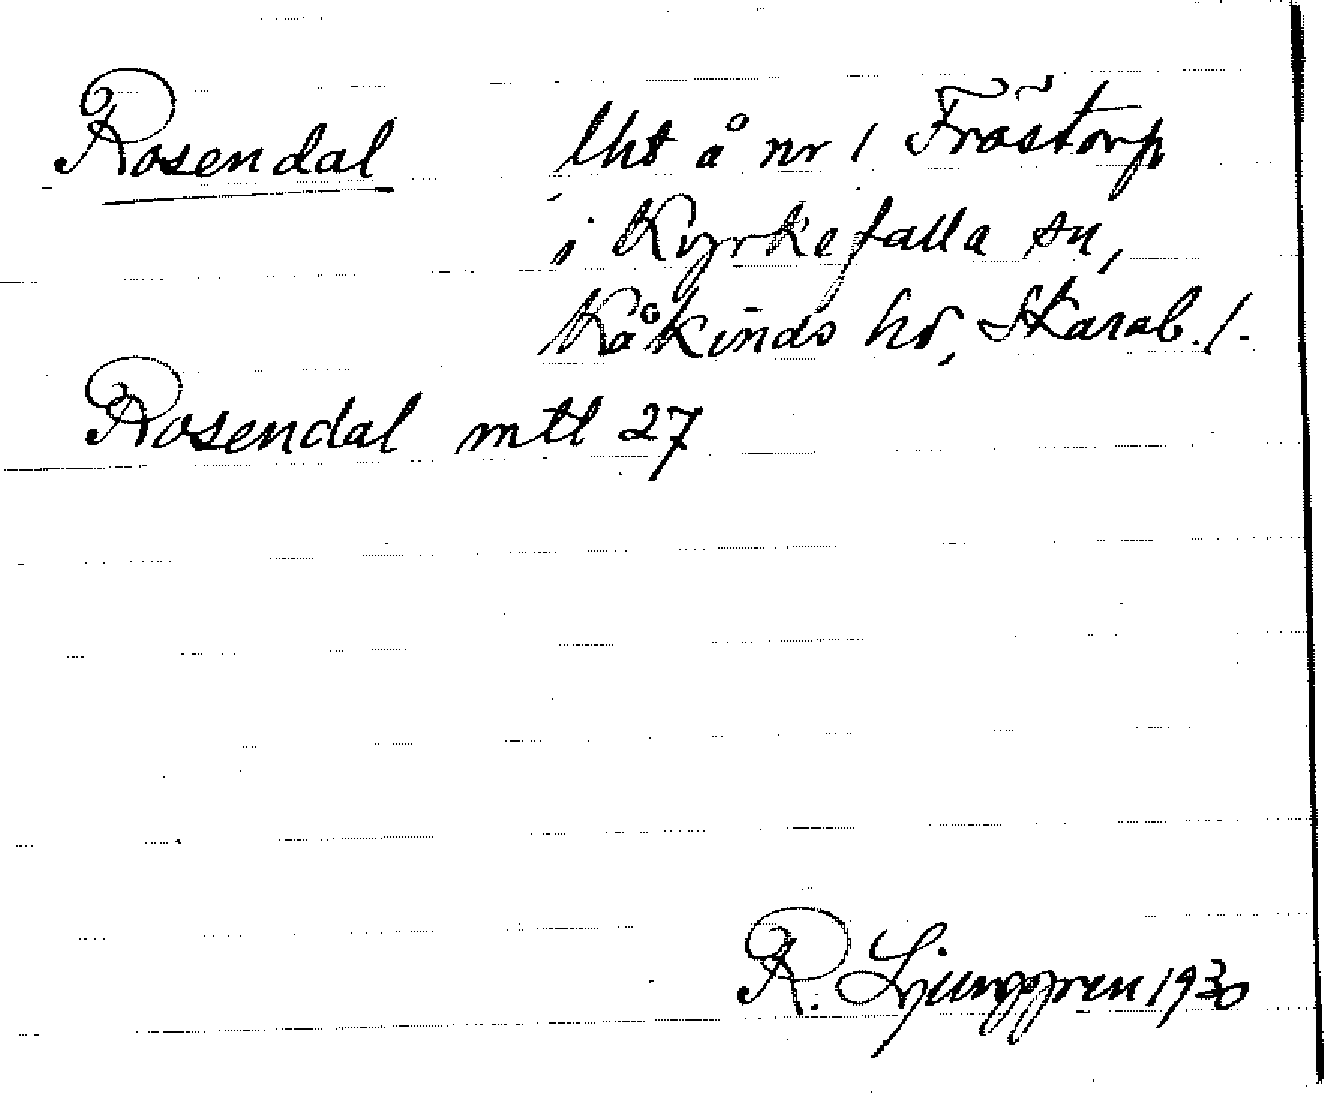 Rosendal lht å nr 1 Fröstorp
i Kyrkefalla sn,
Kåkinds hd, Skarab. l.
Rosendal mtl 27
R. Ljunggren 1930